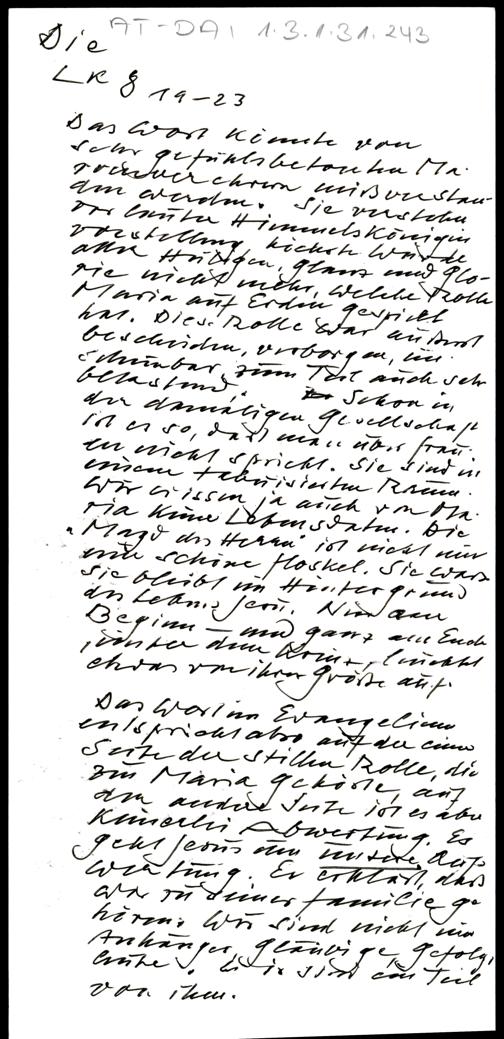 AT-DAI 1.3.1.31.243
Die
LK 8 19-23
Das Wort könnte von
sehr gefühlsbetonten Ma-
rienverehrern mißverstan-
den werden. Sie verstehen
vor lauter Himmelskönigin
vorstellung, höchste Würde
aller Heiligen, Glanz und Glo-
rie nicht mehr, welche Rolle
Maria auf Erden gespielt
hat. Diese Rolle war äußerst
bescheiden, verborgen, un-
scheinbar, zum Teil auch sehr
belastend. Schon in
der damaligen Gesellschaft
ist es so, daß man über Frau-
en nicht spricht. Sie sind in
einem tabuisierten Raum.
Wir wissen ja auch von Ma-
ria keine Lebensdaten. Die
"Magd des Herrn" ist nicht nur
eine schöne Floskel. Sie war's
Sie bleibt im Hintergrund
des Lebens Jesu. Nur am
Beginn - und ganz am Ende
unter dem Kreuz, leuchtet
etwas von ihrer Größe auf.
Das Wort im Evangelium
entspricht also auf der einen
Seite der stillen Rolle, die
zu Maria gehörte, auf
der andern Seite ist es aber
keinerlei Abwertung. Es
geht Jesus um unsere Auf-
wertung. Er erklärt, daß
wir zu seiner Familie ge-
hören. Wir sind nicht nur
Anhänger, Gläubige, Gefolgs
leute. Wir sind ein Teil
von ihm.